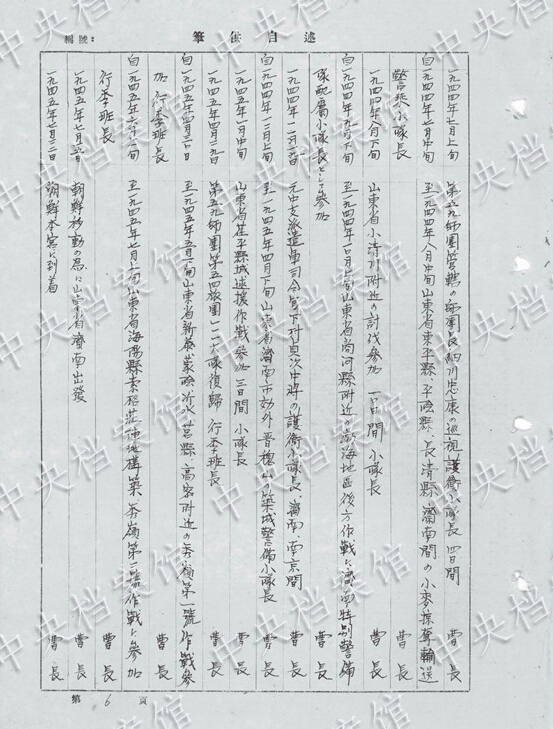 編號:
筆供自述
一九四四年七月上旬 第五九師團管轄の師團長細川忠康の巡視護衛小隊長 四日間 曹長
自一九四四年七月中旬 至一九四四年八月中旬山東省東平縣、平陰縣、長清縣、濟南間の小麥掠奪輸送
警乘小隊長 曹長
一九四四年八月下旬 山東省小清河附近の討伐參加 一日間 小隊長 曹長
自一九四四年九月下旬 至一九四四年一〇月上旬山東省商河縣附近の渤海地區後方作戰に濟南特別警備
隊配屬小隊長として參加 曹長
一九四四年一一月 元中支派遣軍司令官下村 中將の護衛小隊長、濟南、南京間 曹長
自一九四四年一二月上旬 至一九四五年四月下旬山東省濟南市郊外 山の築城警備小隊長 曹長
一九四五年一月中旬 山東省茌平縣城 援作戰參加 三日間 小隊長 曹長
一九四五年四月二九日 第五九師團第五四旅團一一一大隊復歸 行李班長 曹長
自一九四五年四月三〇日 至一九四五年五月下旬山東省新泰、蒙陰、沂水、莒縣、高密附近の秀嶺第一號作戰參
加 行李班長 曹長
自一九四五年六月 旬 至一九四五年七月 旬山東省海陽縣索格莊陣地構築、秀嶺第二號作戰に參加
行李班長 曹長
一九四五年七月 朝鮮移動の為に山東省濟南出發 曹長
一九四五年七月 日 朝鮮本宮に到着 曹長
第6頁
中央档案馆